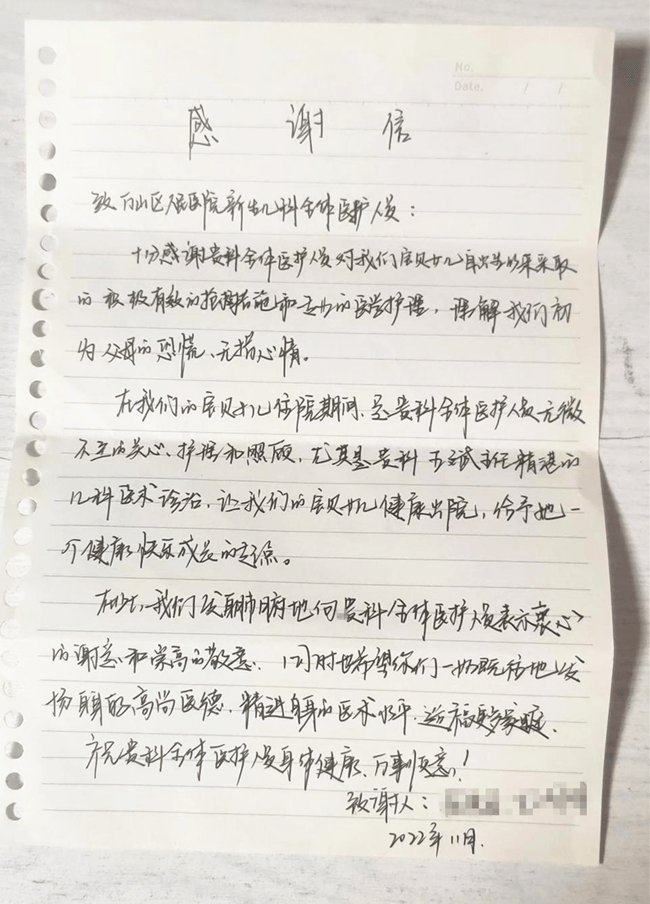 No.
Date. / /
感 谢 信
致白山区人民医院新生儿科全体医护人员：
十分感谢贵科全体医护人员对我们宝贝女儿自出生以来采取
的积极有效的抢救措施和专业的医学护理，缓解我们初
为父母的恐慌、无措心情。
在我们的宝贝女儿住院期间，是贵科全体医护人员无微
不至的关心、护理和照顾，尤其是贵科王斌主任精湛的
儿科医术诊治，让我们的宝贝女儿健康出院，给予她一
个健康快乐成长的起点。
在此，我们发自肺腑地向贵科全体医护人员表示衷心
的谢意和崇高的敬意，同时也希望你们一如既往地发
扬自身的高尚医德，精进自身的医术水平，造福更多家庭。
祝贵科全体医护人员身体健康、万事如意！
致谢人：
2022年11月.